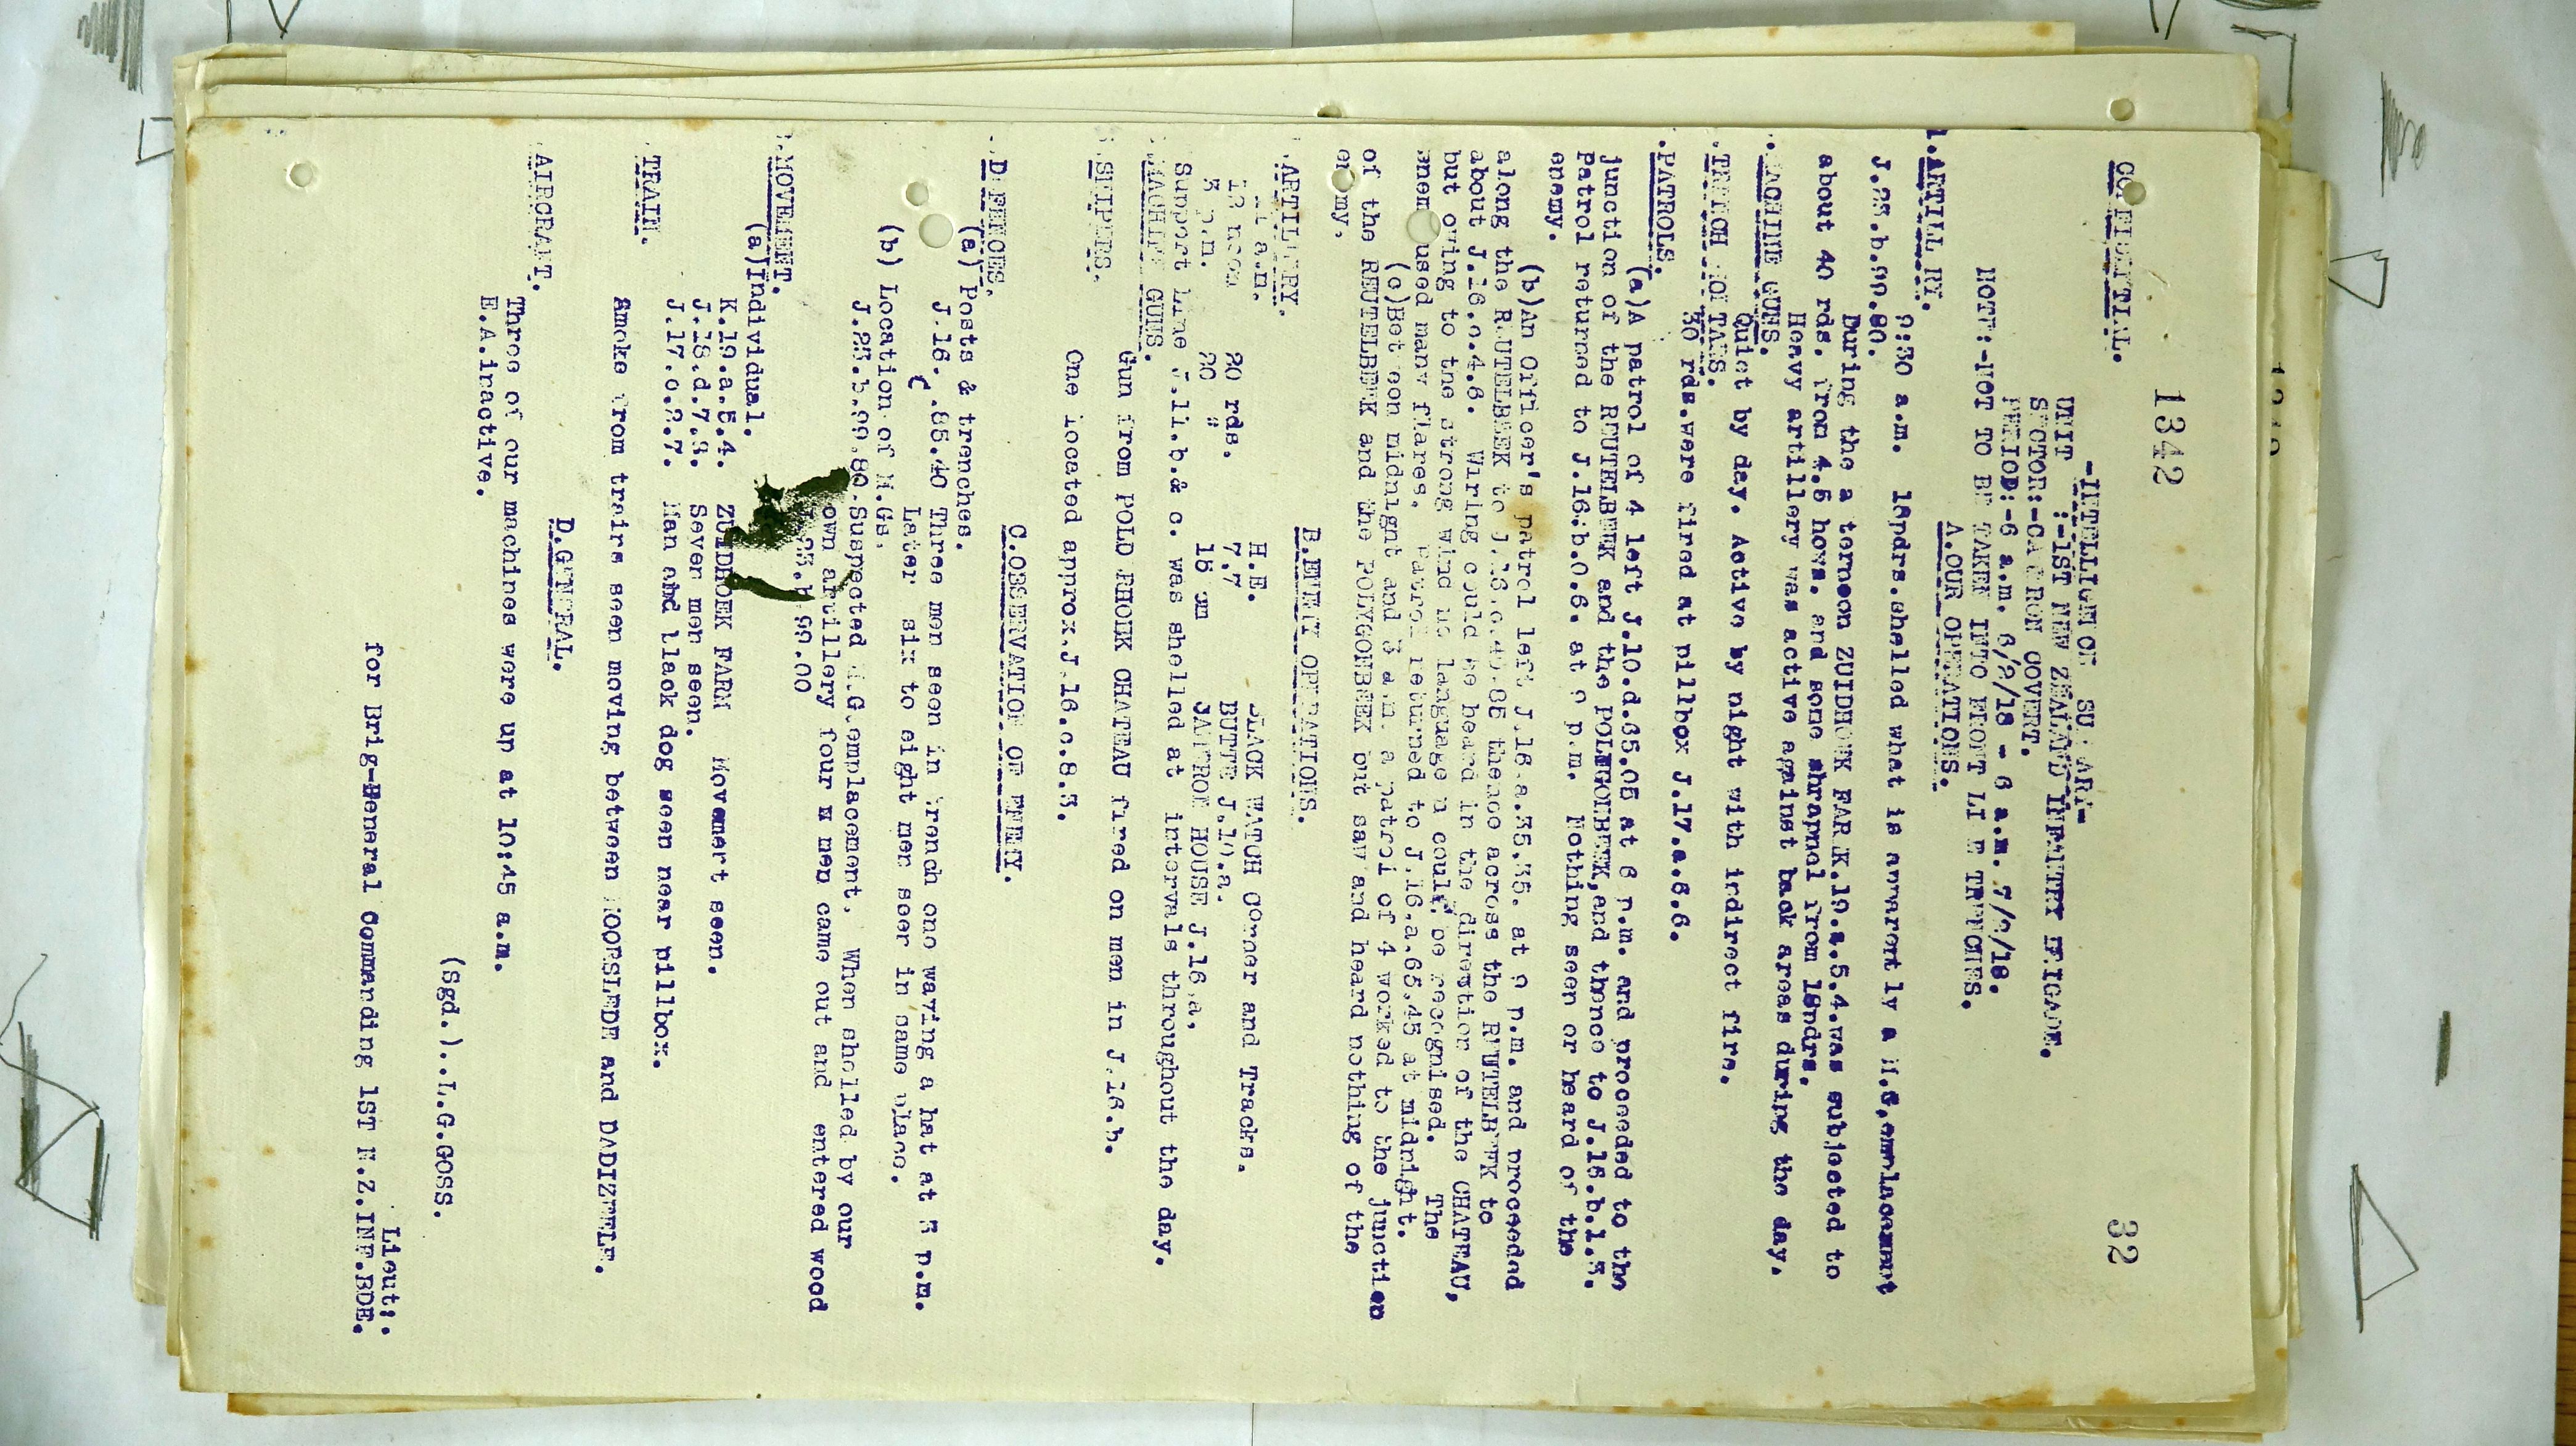 1342
32
CONFIDENTIAL.
-INTELLIGENCE SUMMARY-
UNIT :-1ST NEW ZEALAND INFANTRY BRIGADE.
SECTOR:-CAMERON COVERT.
PERIOD:-6 a.m. 6/2/18 - 6 a.m. 7/2/18.
NOTE:-NOT TO BE TAKEN INTO FRONT LINE TRENCHES.
A.OUR OPERATIONS.
1.ARTILLERY.
9:30 a.m. 18pdrs.shelled what is apparently a M.G.emplacement
J.23.b.99.80.
During the afternoon ZUIDHOEK FARM K.19.a.5.4.was subjected to
about 40 rds. from 4.5 hows. and some shrapnel from 18pdrs.
Heavy artillery was active against back areas during the day.
MACHINE GUNS.
Quiet by day. Active by night with indirect fire.
TRENCH MORTARS.
30 rds.were fired at pillbox J.17.a.6.6.
PATROLS.
(a)A patrol of 4 left J.10.d.65.05 at 6 p.m. and proceeded to the
junction of the REUTELBEEK and the POLYGONBEEK,and thence to J.16.b.1.3.
Patrol returned to J.16.b.0.6. at 9 p.m. Nothing seen or heard of the
enemy.
(b)An Officer's patrol left J.16.a.35.35. at 9 p.m. and proceeded
along the REUTELBEEK to J.16.c.45.85 thence across the REUTELBEEK to
about J.16.c.4.6. Wiring could be heard in the direction of the CHATEAU,
but owing to the strong wind no language could be recognised. The
enemy used many flares. Patrol returned to J.16.a.65.45 at midnight.
(c)Between midnight and 3 a.m. a patrol of 4 worked to the junction
of the REUTELBEEK and the POLYGONBEEK but saw and heard nothing of the
enemy.
B.ENEMY OPERATIONS.
ARTILLERY.
H.E. BLACK WATCH Corner and Tracks.
12 noon 20 rds. 7.7 BUTTE J.10.a.
3 p.m. 20 " 15 cm JAFFROI HOUSE J.16.a.
Support Line J.11.b.& c. was shelled at intervals throughout the day.
MACHINE GUNS.
Gun from POLDERHOEK CHATEAU fired on men in J.16.b.
SNIPERS.
One located approx.J.16.c.8.3.
C.OBSERVATION OF ENEMY.
DEFENCES.
(a) Posts & trenches.
J.16.c.85.40 Three men seen in trench one waving a hat at 3 p.m.
Later six to eight men seen in same place.
(b) Location of M.Gs.
J.23.b.99.80.Suspected M.G.emplacement. When shelled by our
own artillery four men came out and entered wood
J.23.b.99.00
MOVEMENT.
(a)Individual.
K.19.a.5.4. ZUIDHOEK FARM Movement seen.
J.18.d.7.3. Seven men seen.
J.17.c.2.7. Man and black dog seen near pillbox.
TRAIN.
Smoke from trains seen moving between MOORSLEDE and DADIZEELE.
D.GENERAL.
AIRCRAFT.
Three of our machines were up at 10:45 a.m.
E.A.inactive.
(Sgd.)..L.G.GOSS.
Lieut:.
for Brig-General Commanding 1ST N.Z.INF.BDE.